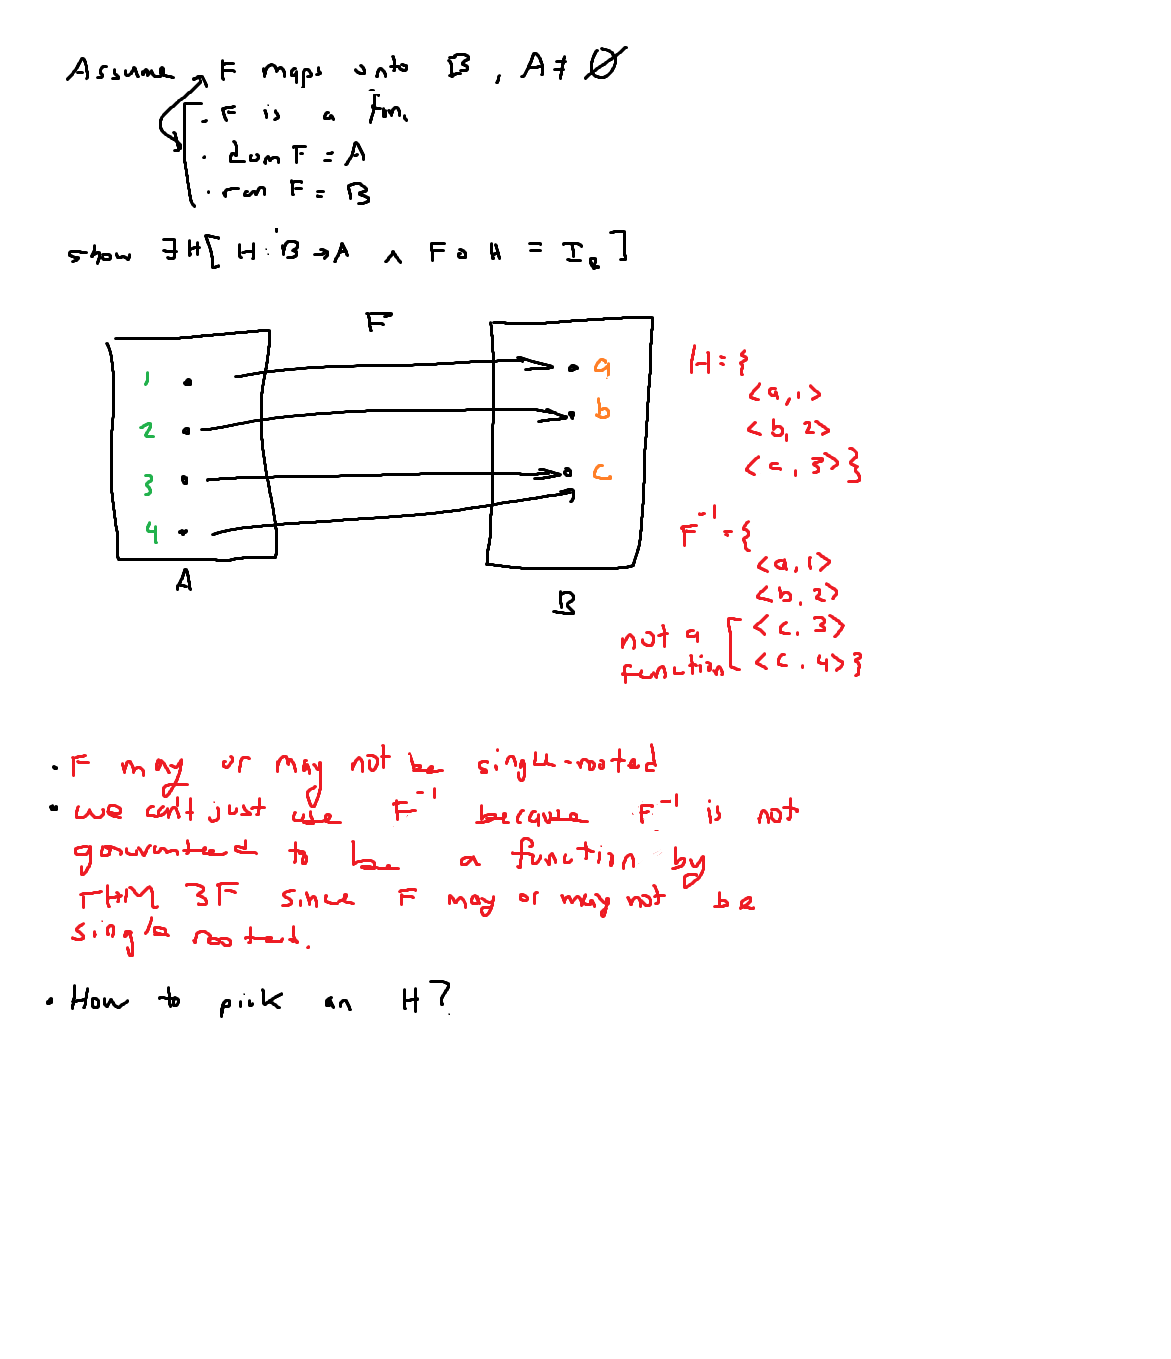 Assume F maps onto B, A ≠ ∅
· F is a fn.
· dom F = A
· ran F = B
show ∃H[ H: B → A ∧ F ∘ H = I_B ]
F
1
2
3
4
A
a
b
c
B
H = {
<a, 1>
<b, 2>
<c, 3>}
F⁻¹ = {
<a, 1>
<b, 2>
<c, 3>
<c, 4>}
not a
function
· F may or may not be single-rooted
· we can't just use F⁻¹ because F⁻¹ is not
guaranteed to be a function by
THM 3F since F may or may not be
single rooted.
· How to pick an H?